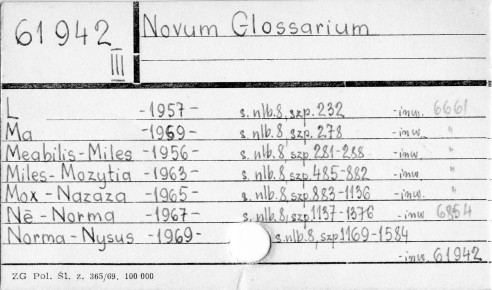 61942 Novum Glossarium
III
L -1957- s. nlb. 8, szp. 232 -inw. 6661
Ma -1969- s. nlb. 8, szp. 278 -inw. "
Meabilis-Miles -1956- s. nlb. 8, szp 281-288 -inw. "
Miles-Mozytia -1963- s. nlb. 8, szp. 485-882 -inw. "
Mox-Nazaza -1965- s. nlb. 8, szp. 883-1136 -inw. "
Nē-Norma -1967- s. nlb. 8, szp 1137-1376 -inw. 6854
Norma-Nysus -1969- s. nlb. 8, szp 1169-1584
-inw. 61942
ZG Pol. Śl. z. 365/69. 100 000